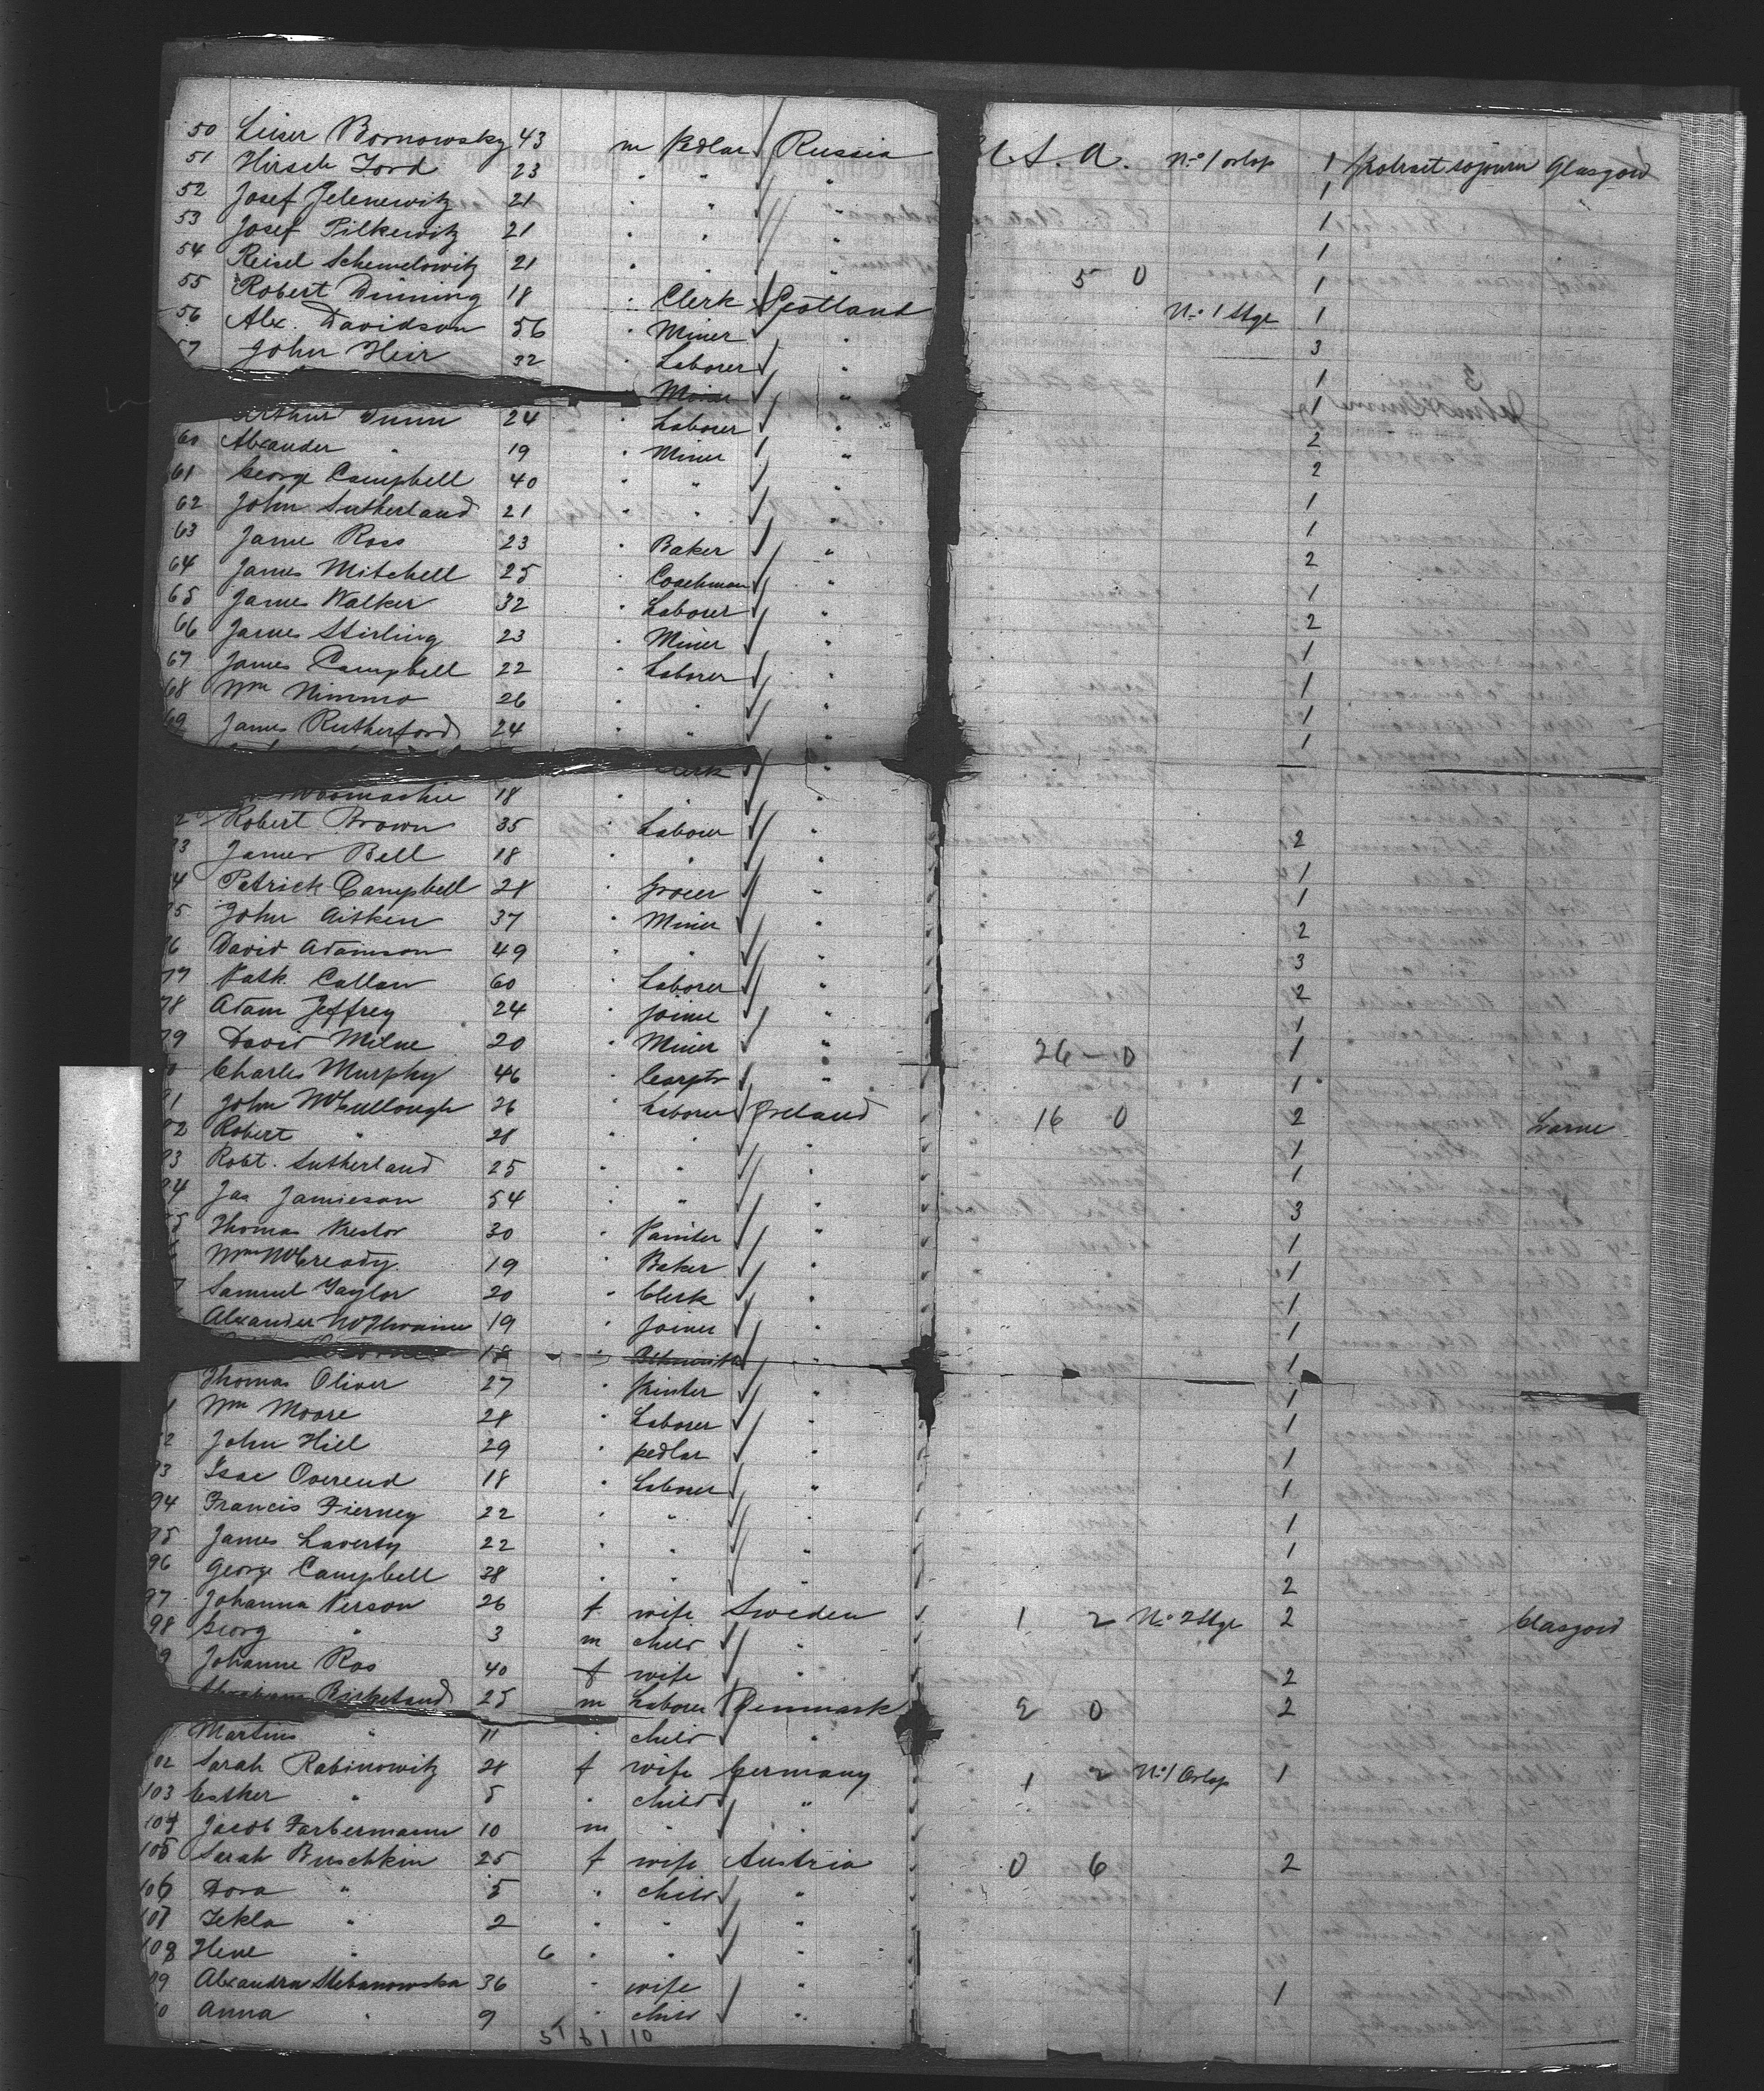 50 Leiser Bornowsky 43 m Pedlar Russia U.S.A. No 1 orlop 1 protract sojourn Glasgow
51 Hirsch Lord 23 " " " 1
52 Josef Jelenewitz 21 " " " 1
53 Josef Pilkewitz 21 " " " 1
54 Reisel Schemelowitz 21 " " " 5 0 1
55 Robert Dinning 18 " Clerk Scotland No 1 Stge 1
56 Alex. Davidson 56 " Miner " 3
57 John Heir 32 " Laborer " 1
Miner " 1
Arthur Dunn 24 " Laborer " 2
60 Alexander " 19 " Miner " 2
61 George Campbell 40 " " " 1
62 John Sutherland 21 " " " 1
63 James Ross 23 " Baker " 2
64 James Mitchell 25 " Coachman " 1
65 James Walker 32 " Laborer " 2
66 James Stirling 23 " Miner " 1
67 James Campbell 22 " Laborer " 1
68 Wm Nimmo 26 " " " 1
69 James Rutherford 24 " " " 1
Clerk "
18 " "
2 Robert Brown 35 " Laborer " 2
73 James Bell 18 " " " 1
4 Patrick Campbell 28 " Grocer " 1
75 John Aitken 37 " Miner " 2
76 David Adamson 49 " " " 3
77 Patk. Callan 60 " Laborer " 2
78 Adam Jeffrey 24 " Joiner " 1
79 David Milne 20 " Miner " 26 - 0 1
0 Charles Murphy 46 " Carptr " 1
81 John McCullough 26 " Laborer Ireland 16 0 2 Larne
82 Robert " 28 " " " 1
83 Robt. Sutherland 25 " " " 1
84 Jas Jamieson 54 " " " 3
85 Thomas Prestor 30 " Painter " 1
Wm McCready 19 " Baker " 1
7 Samuel Taylor 20 " Clerk " 1
Alexander McIlwaine 19 " Joiner " 1
18 " Blksmith " 1
Thomas Oliver 27 " Printer " 1
1 Wm Moore 28 " Laborer " 1
2 John Hill 29 " pedlar " 1
93 Isac Overend 18 " Laborer " 1
94 Francis Tierney 22 " " " 1
95 James Laverty 22 " " " 1
96 George Campbell 38 " " " 2
97 Johanna Person 26 f wife Sweden 1 2 No 2 Stge 2 Glasgow
98 Georg " 3 m child "
9 Johanne Ros 40 f wife " 2
Birkeland 25 m Laborer Denmark 2 0 2
Martins " 11 " child "
102 Sarah Rabinowitz 28 f wife Germany 1 2 No 1 Orlop 1
103 Esther " 5 " child "
104 Jacob Farbermann 10 m " "
105 Sarah Buschkin 25 f wife Austria 0 6 2
106 Dora " 5 " child "
107 Tekla " 2 " " "
108 Hene " 6 " " "
109 Alexandra Stebanowska 36 " wife " 1
0 Anna " 9 " child "
51 61 10